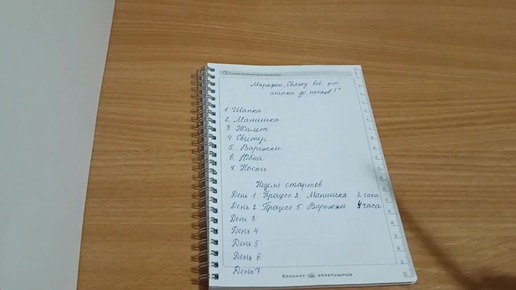 Марафон „Свяжу всё от
шапки до носков!"
1 Шапка
2. Манишка
3 Жилет
4 Свитер
5. Варежки
6 Юбка
7. Носки
Неделя стартов
День 1 Процесс 2. Манишка 2 часа
День 2 Процесс 5. Варежки 4 часа
День 3
День 4
День 5
День 6
День 7
блокнот вязальщицы